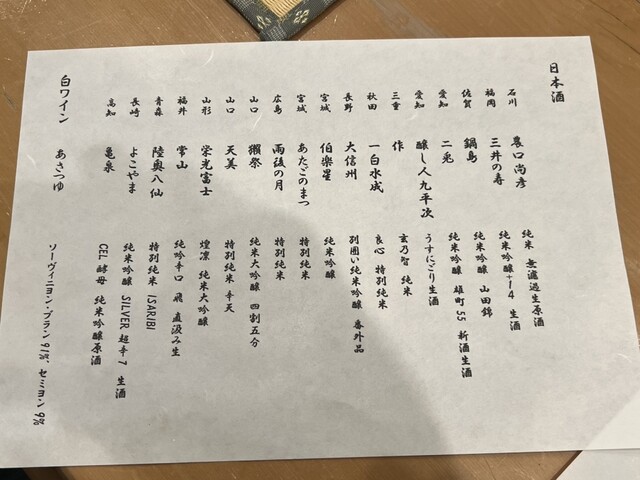 日本酒
石川 農口尚彦 純米 無濾過生原酒
福岡 三井の寿 純米吟醸+14 生酒
佐賀 鍋島 純米吟醸 山田錦
愛知 二兎 純米吟醸 雄町55 新酒生酒
愛知 醸し人九平次 うすにごり生酒
三重 作 玄乃智 純米
秋田 一白水成 良心 特別純米
長野 大信州 別囲い純米吟醸 番外品
宮城 伯楽星 純米吟醸
宮城 あたごのまつ 特別純米
広島 雨後の月 特別純米
山口 獺祭 純米大吟醸 四割五分
山口 天美 特別純米 辛天
山形 栄光富士 煌凛 純米大吟醸
福井 常山 純吟辛口 飛 直汲み生
青森 陸奥八仙 特別純米 ISARIBI
長崎 よこやま 純米吟醸 SILVER 超辛7 生酒
高知 亀泉 CEL酵母 純米吟醸原酒
白ワイン あさつゆ ソーヴィニヨン・ブラン91%、セミヨン9%